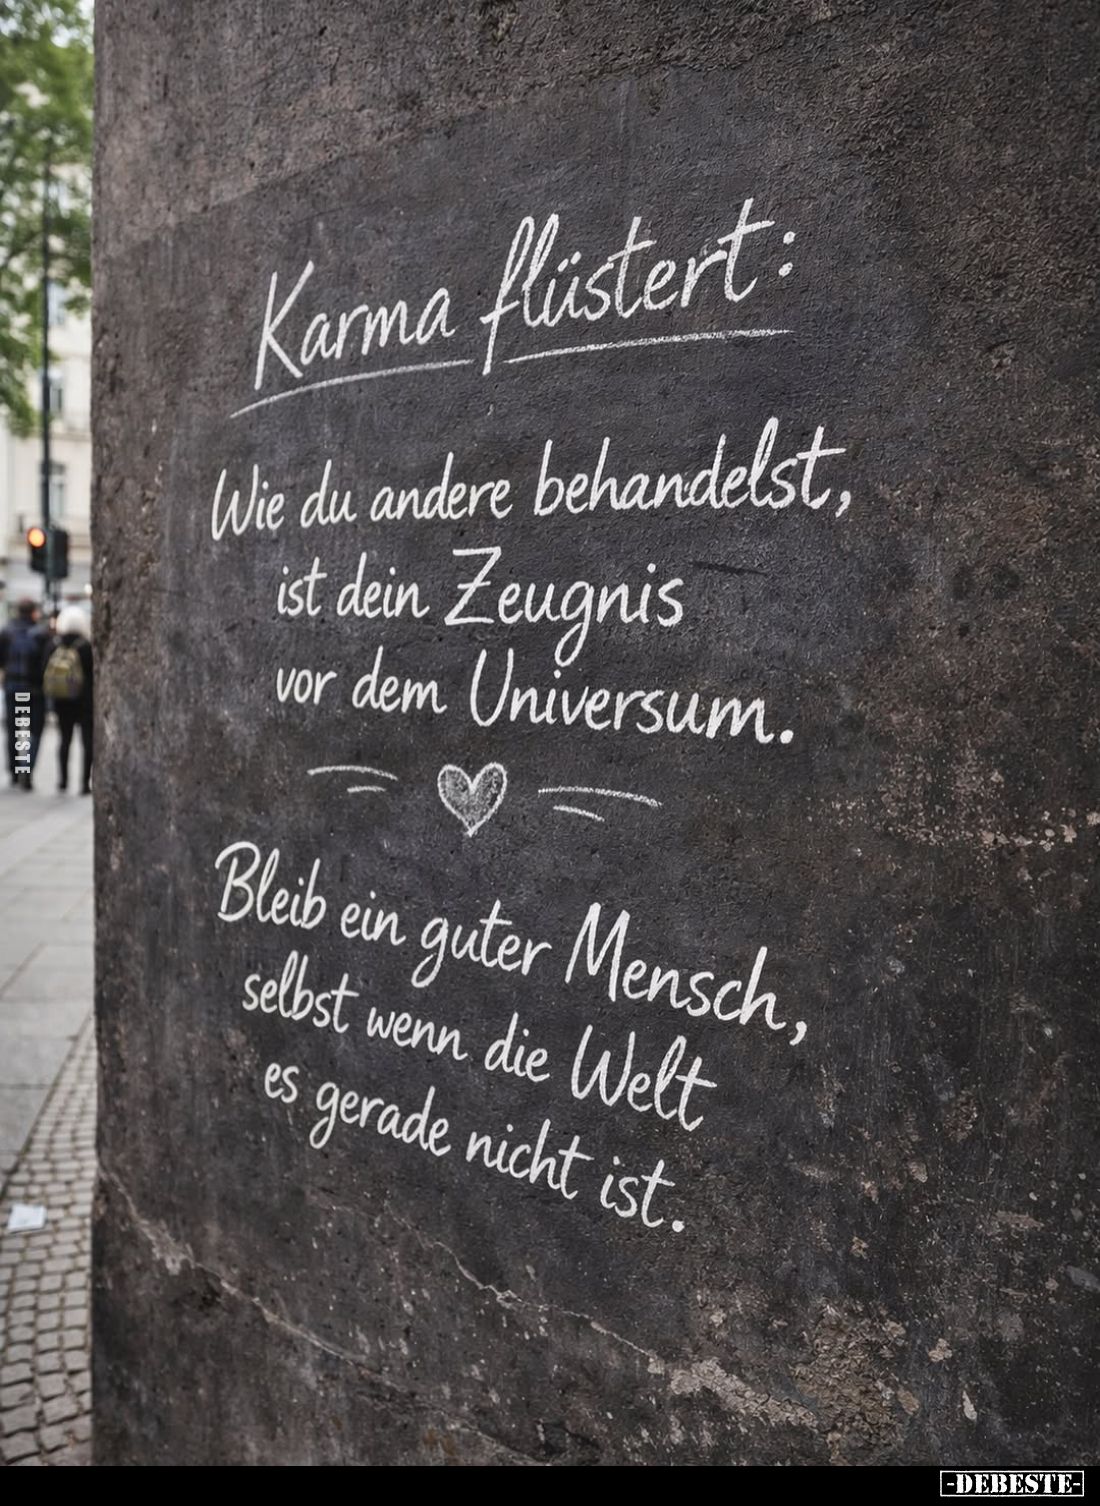 Karma flüstert:
Wie du andere behandelst,
ist dein Zeugnis
vor dem Universum.
Bleib ein guter Mensch,
selbst wenn die Welt
es gerade nicht ist.
DEBESTE
-DEBESTE-